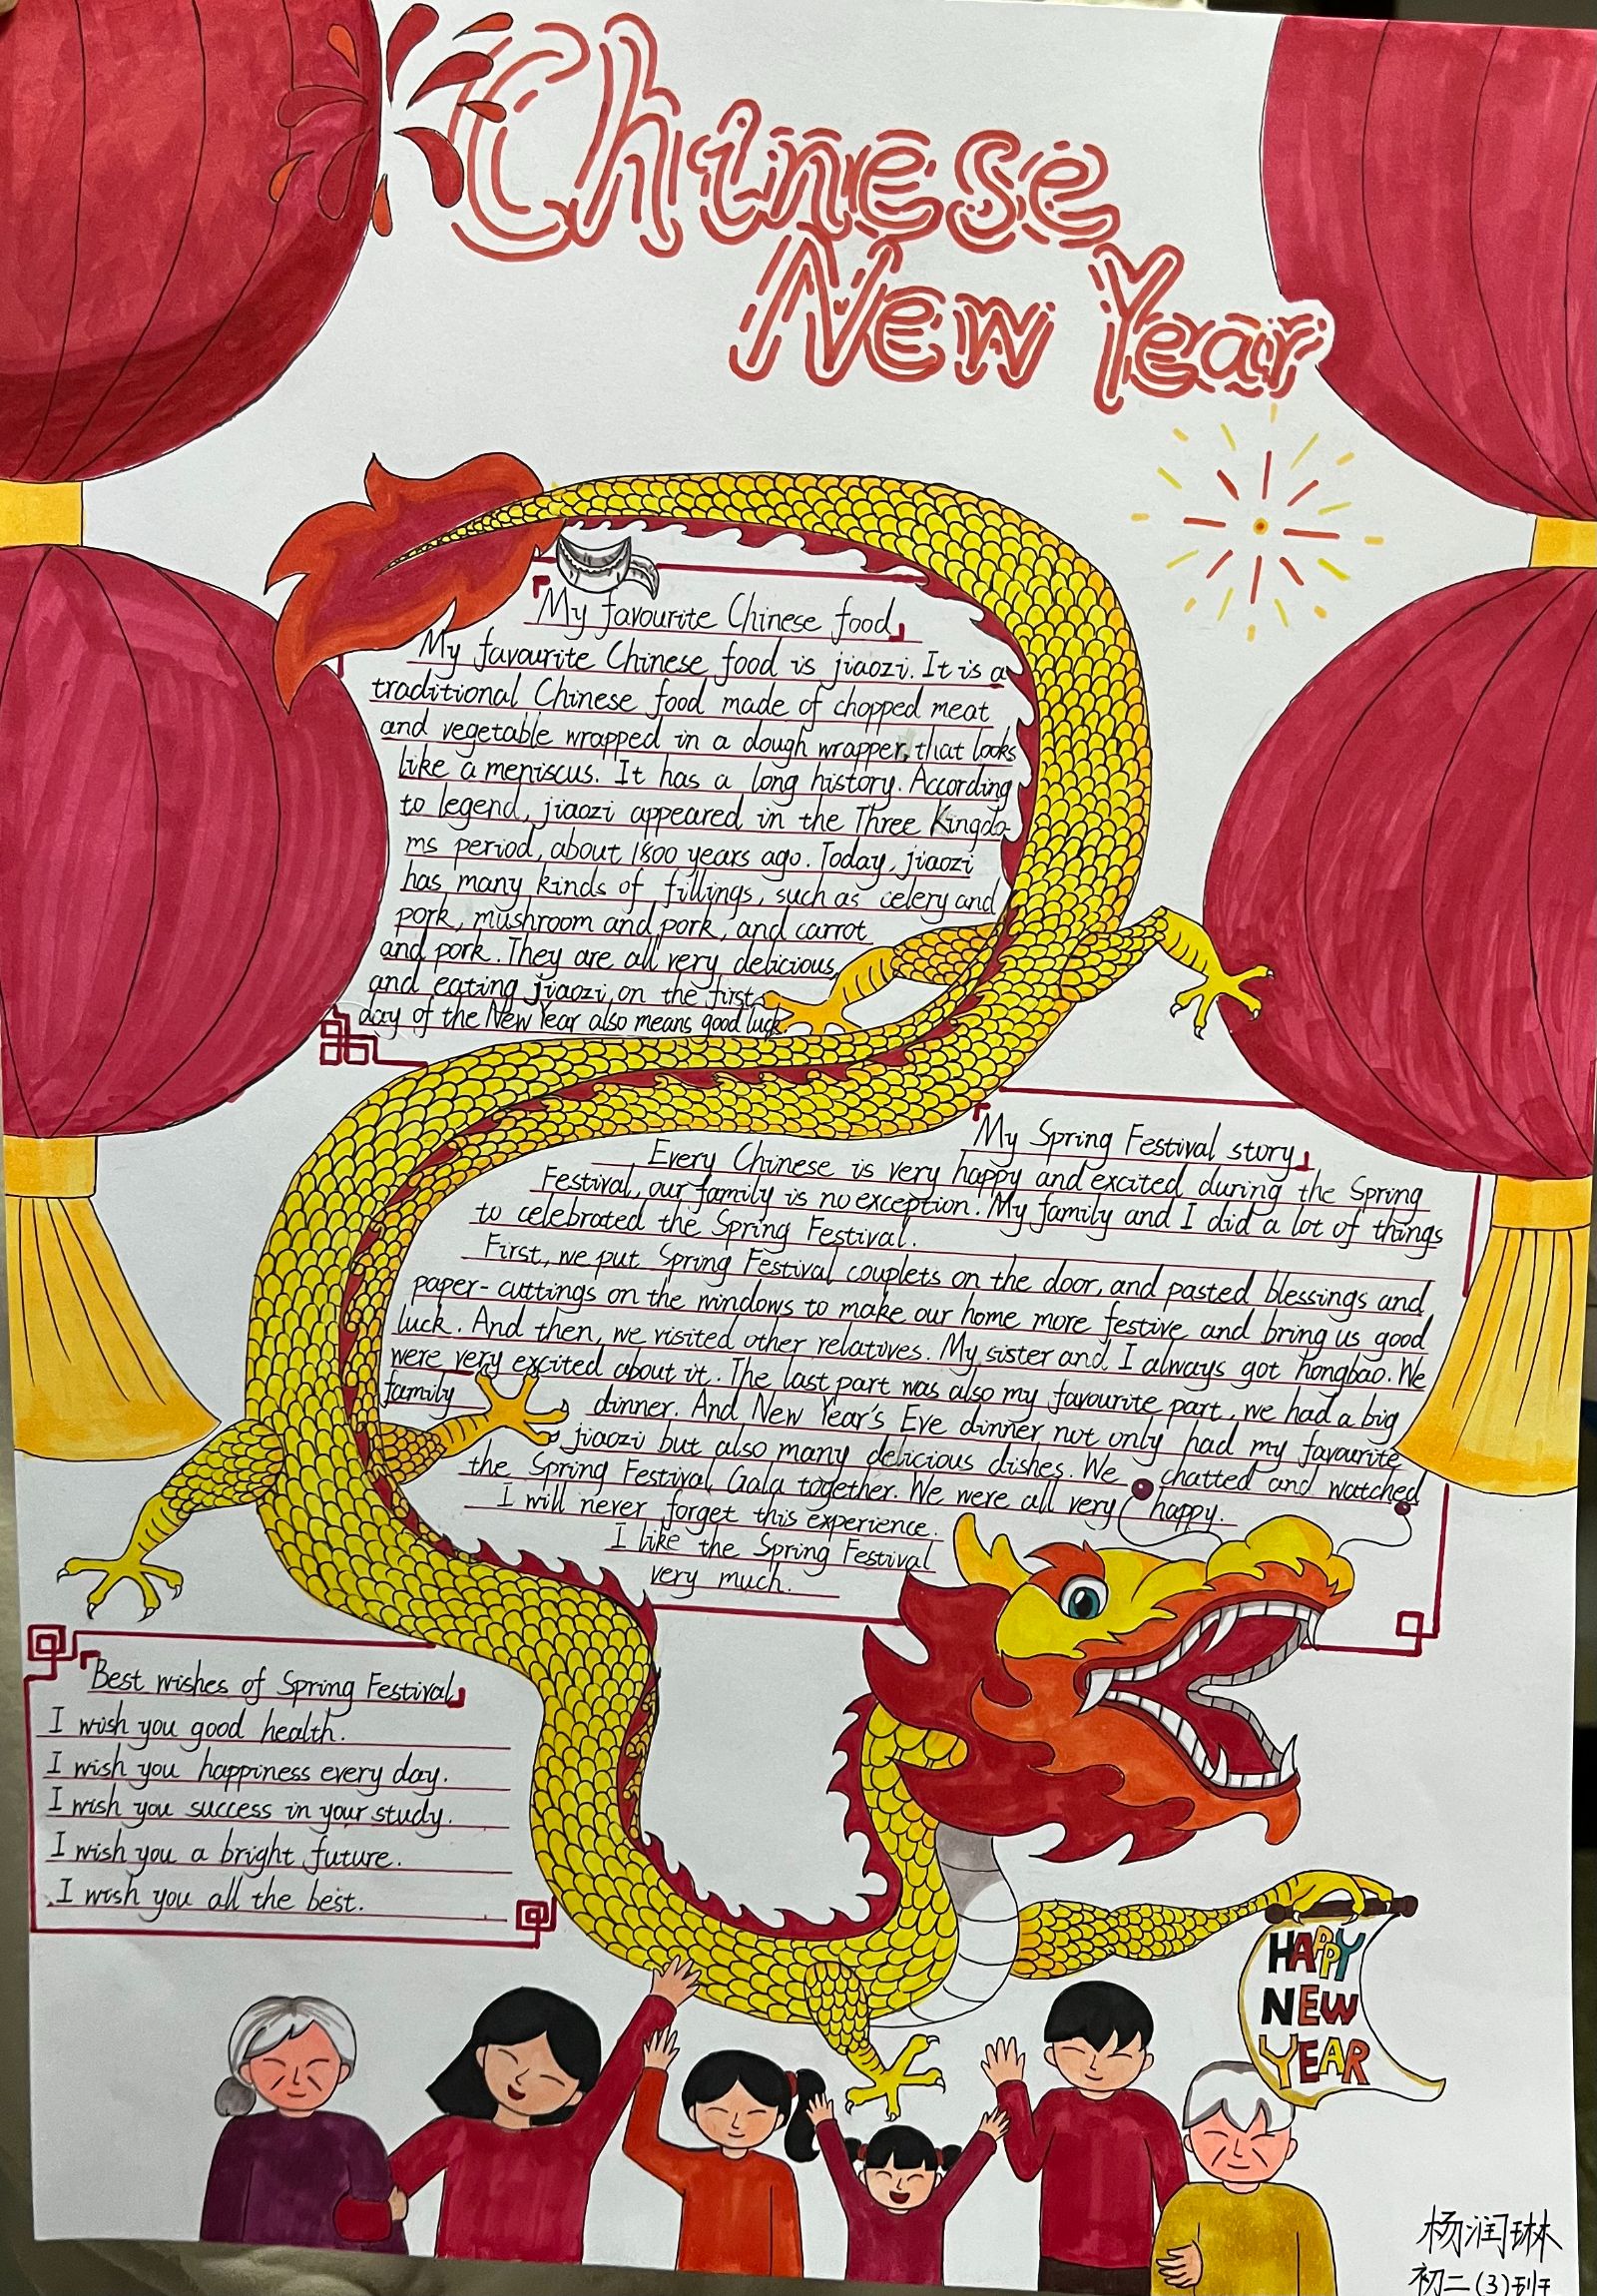 Chinese
New Year
「My favourite Chinese food」
My favourite Chinese food is jiaozi. It is a
traditional Chinese food made of chopped meat
and vegetable wrapped in a dough wrapper, that looks
like a meniscus. It has a long history. According
to legend, jiaozi appeared in the Three Kingdo-
ms period, about 1800 years ago. Today, jiaozi
has many kinds of fillings, such as celery and
pork, mushroom and pork, and carrot
and pork. They are all very delicious,
and eating jiaozi on the first
day of the New Year also means good luck.
「My Spring Festival story」
Every Chinese is very happy and excited during the Spring
Festival, our family is no exception. My family and I did a lot of things
to celebrated the Spring Festival.
First, we put Spring Festival couplets on the door, and pasted blessings and
paper-cuttings on the windows to make our home more festive and bring us good
luck. And then, we visited other relatives. My sister and I always got hongbao. We
were very excited about it. The last part was also my favourite part, we had a big
family dinner. And New Year's Eve dinner not only had my favourite
jiaozi but also many delicious dishes. We chatted and watched
the Spring Festival Gala together. We were all very happy.
I will never forget this experience.
I like the Spring Festival
very much.
「Best wishes of Spring Festival」
I wish you good health.
I wish you happiness every day.
I wish you success in your study.
I wish you a bright future.
I wish you all the best.
HAPPY
NEW
YEAR
杨润琳
初二(3)班